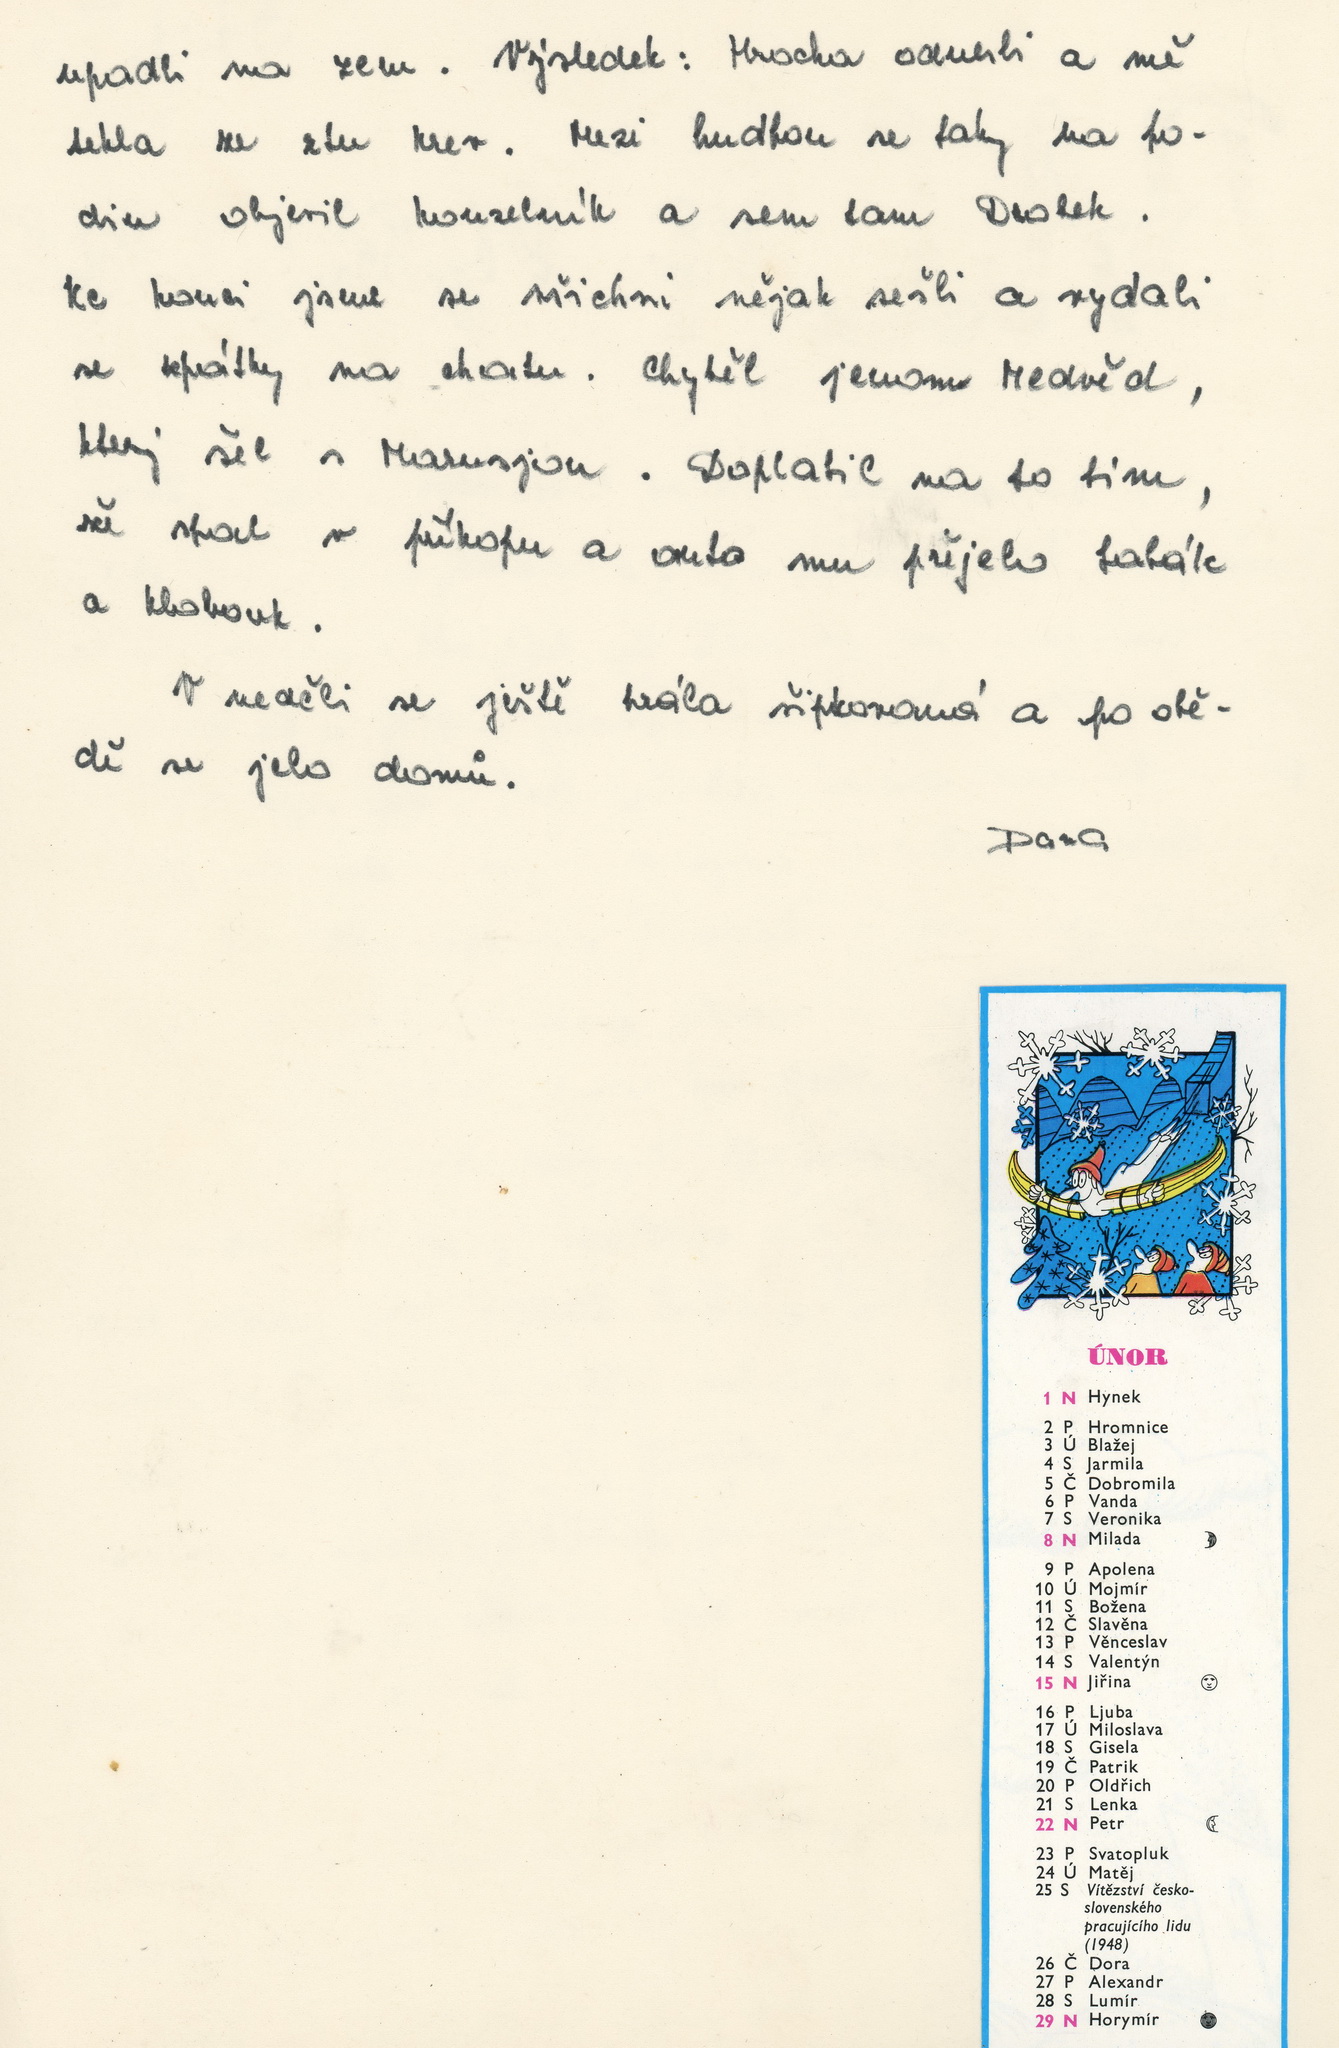 upadli na zem. Výsledek: Hrocha odnesli a mě
tekla ze rtu krev. Mezi hudbou se taky na po-
diu objevil kouzelník a sem tam Drobek.
Ke konci jsme se všichni nějak sešli a vydali
se zpátky na chatu. Chyběl jenom Medvěd,
který šel s Marusjou. Doplatil na to tím,
že spal v příkopu a auto mu přejelo baťák
a klobouk.
V neděli se ještě hrála šipkovaná a po obě-
dě se jelo domů.
Dana
ÚNOR
1 N Hynek
2 P Hromnice
3 Ú Blažej
4 S Jarmila
5 Č Dobromila
6 P Vanda
7 S Veronika
8 N Milada
9 P Apolena
10 Ú Mojmír
11 S Božena
12 Č Slavěna
13 P Věnceslav
14 S Valentýn
15 N Jiřina
16 P Ljuba
17 Ú Miloslava
18 S Gisela
19 Č Patrik
20 P Oldřich
21 S Lenka
22 N Petr
23 P Svatopluk
24 Ú Matěj
25 S Vítězství česko-
slovenského
pracujícího lidu
(1948)
26 Č Dora
27 P Alexandr
28 S Lumír
29 N Horymír